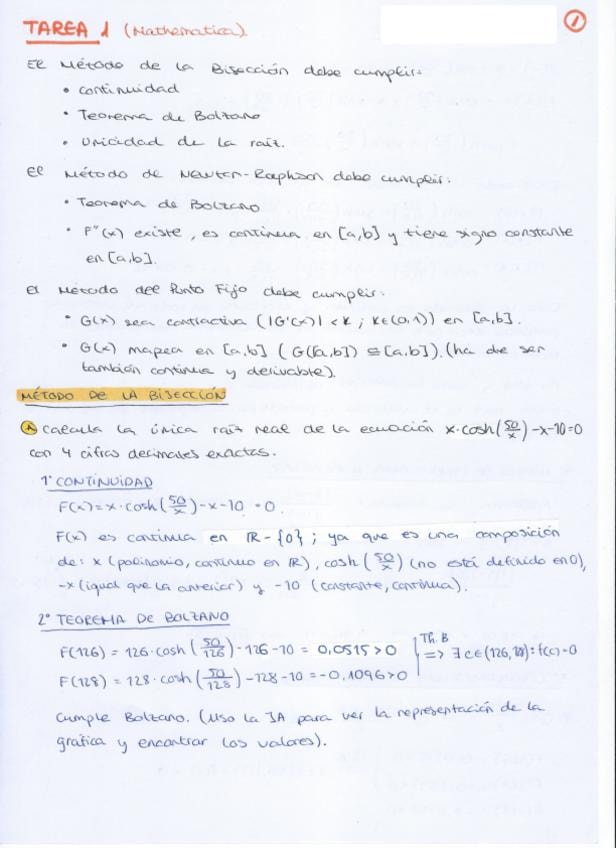 TAREA 1 (Mathematica).
1
El Método de la Bisección debe cumplir:
• continuidad
• Teorema de Bolzano
• Unicidad de la raíz.
El Método de Newton-Raphson debe cumplir:
• Teorema de Bolzano
• F''(x) existe, es continua en [a,b] y tiene signo constante
en [a,b].
El Método del Punto Fijo debe cumplir:
• G(x) sea contractiva (|G'(x)| < K ; K∈(0,1)) en [a,b].
• G(x) mapea en [a,b] (G([a,b]) ⊆ [a,b]). (ha de ser
también continua y derivable).
MÉTODO DE LA BISECCIÓN
Calcula la única raíz real de la ecuación x·cosh(50/x)-x-10=0
con 4 cifras decimales exactas.
1º CONTINUIDAD
F(x)=x·cosh(50/x)-x-10 =0.
F(x) es continua en ℝ-{0}; ya que es una composición
de: x (polinomio, continuo en ℝ), cosh(50/x) (no está definido en 0),
-x (igual que la anterior) y -10 (constante, continua).
2º TEOREMA DE BOLZANO
F(126) = 126·cosh(50/126)-126-10 = 0,0515>0
F(128) = 128·cosh(50/128)-128-10=-0,1096>0
Th. B
=> ∃ c∈(126,128): f(c)=0
Cumple Bolzano. (Uso la IA para ver la representación de la
gráfica y encontrar los valores).